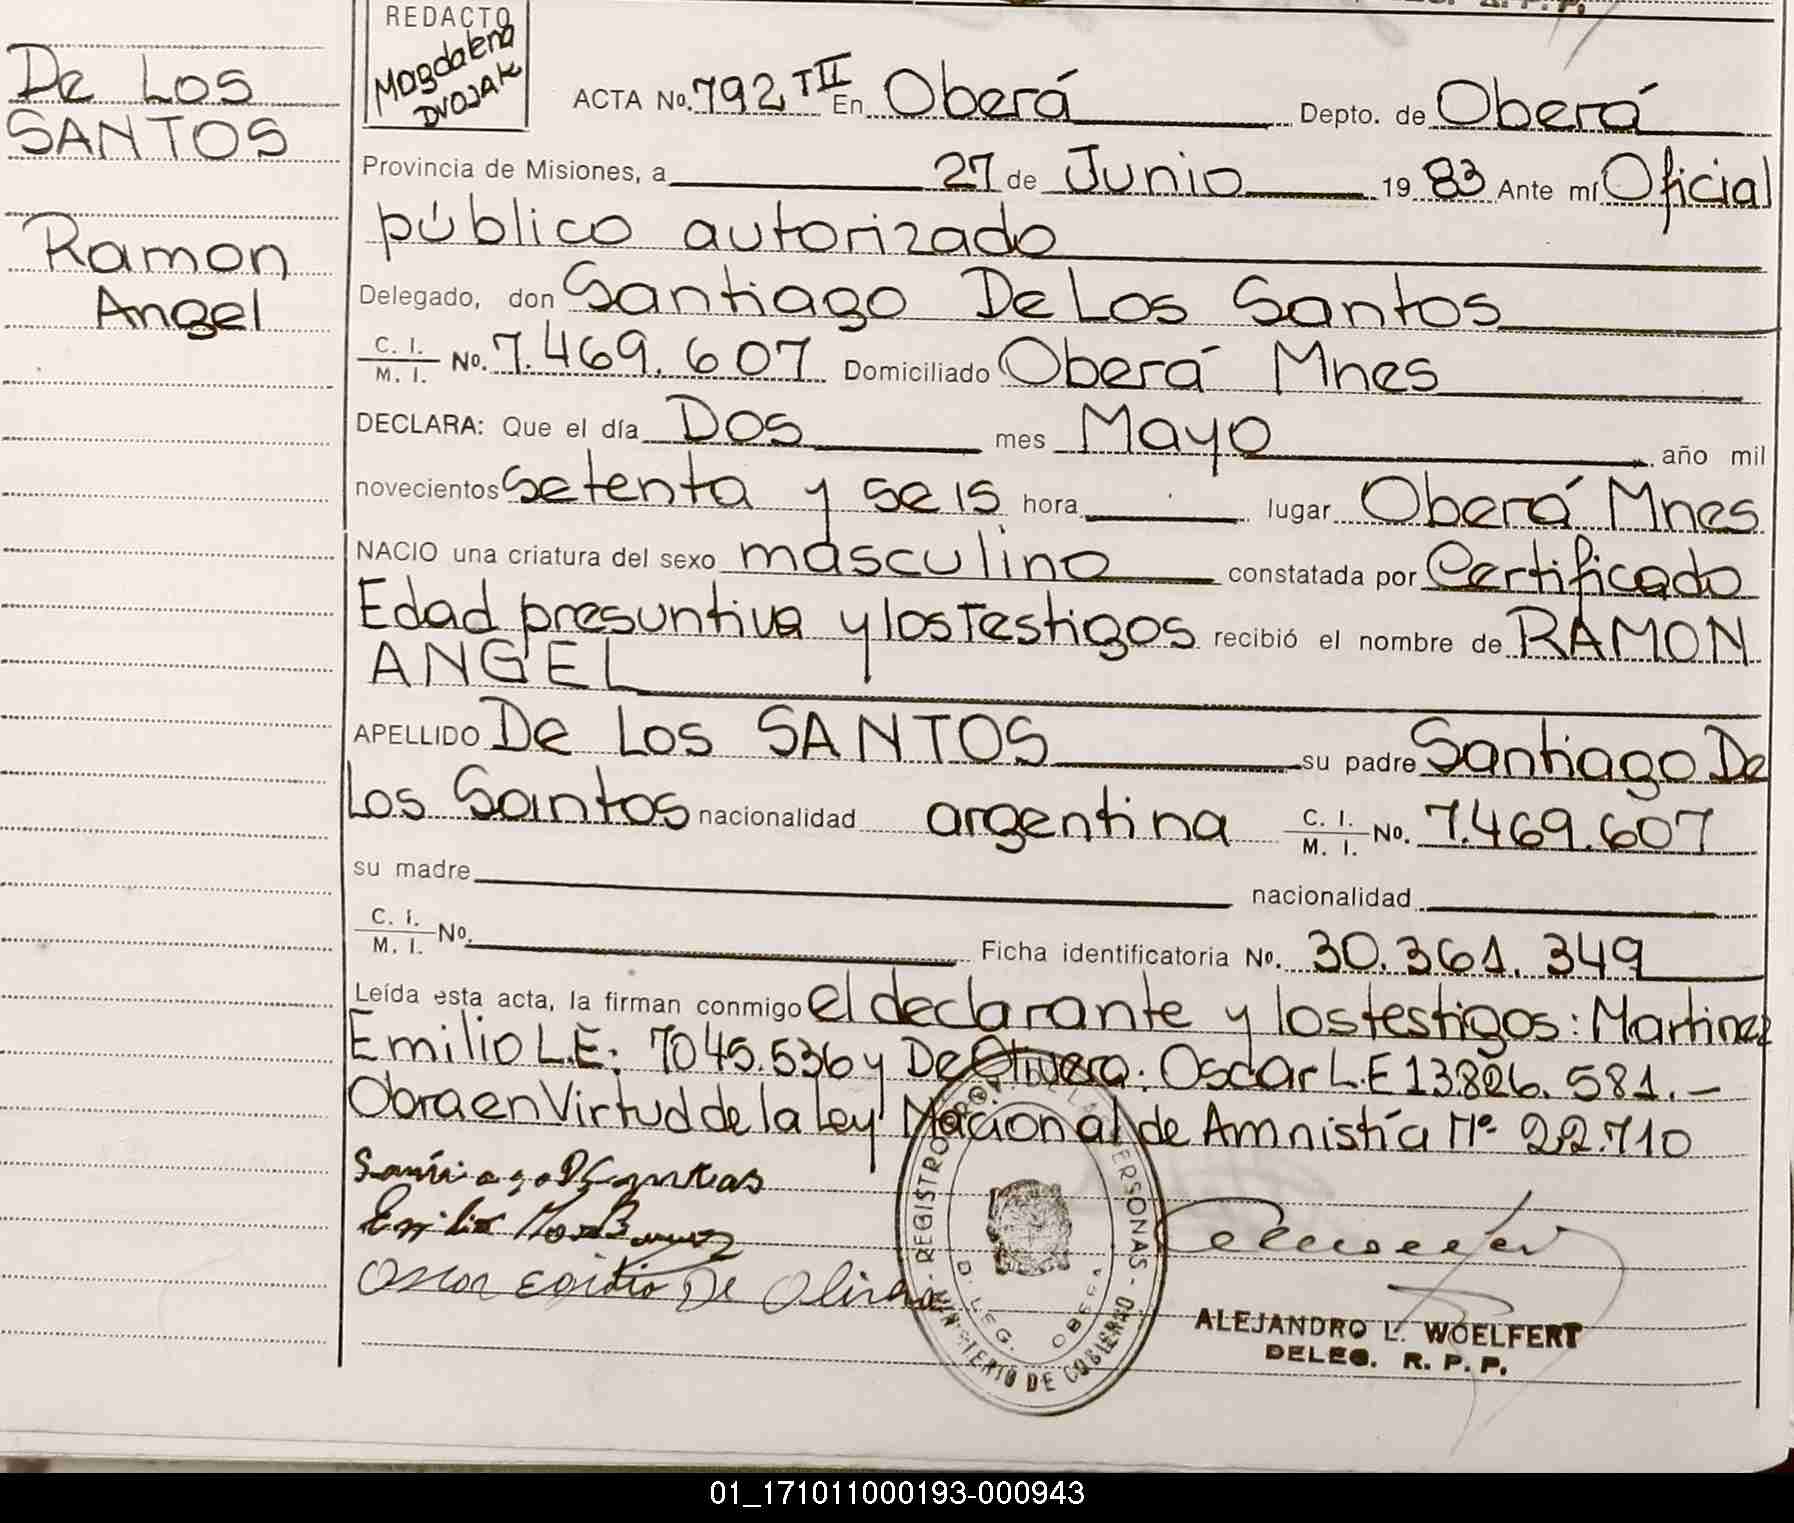 De Los
SANTOS
Ramon
Angel
REDACTO
Magdalena
DVOJAK
ACTA No. 792 TII En Oberá Depto. de Oberá
Provincia de Misiones, a 27 de Junio 19 83 Ante mí Oficial
público autorizado
Delegado, don Santiago De Los Santos
C. I. / M. I. No. 7.469.607 Domiciliado Oberá Mnes
DECLARA: Que el día Dos mes Mayo año mil
novecientos setenta y seis hora lugar Oberá Mnes
NACIO una criatura del sexo masculino constatada por Certificado
Edad presuntiva y los Testigos recibió el nombre de RAMON
ANGEL
APELLIDO De Los SANTOS su padre Santiago De
Los Santos nacionalidad argentina C. I. / M. I. No. 7.469.607
su madre nacionalidad
C. I. / M. I. No. Ficha identificatoria No. 30.361.349
Leída esta acta, la firman conmigo el declarante y los testigos: Martinez
Emilio L.E: 7045.536 y De Olivera. Oscar L.E 13.826.581.-
Obra en Virtud de la Ley Nacional de Amnistía Nº 22.710
Oscar Egidio De Olivera
REGISTRO PERSONAS - MINISTERIO DE GOBIERNO
DELEG. OBERA
ALEJANDRO L. WOELFERT
DELEG. R. P. P.
01_171011000193-000943